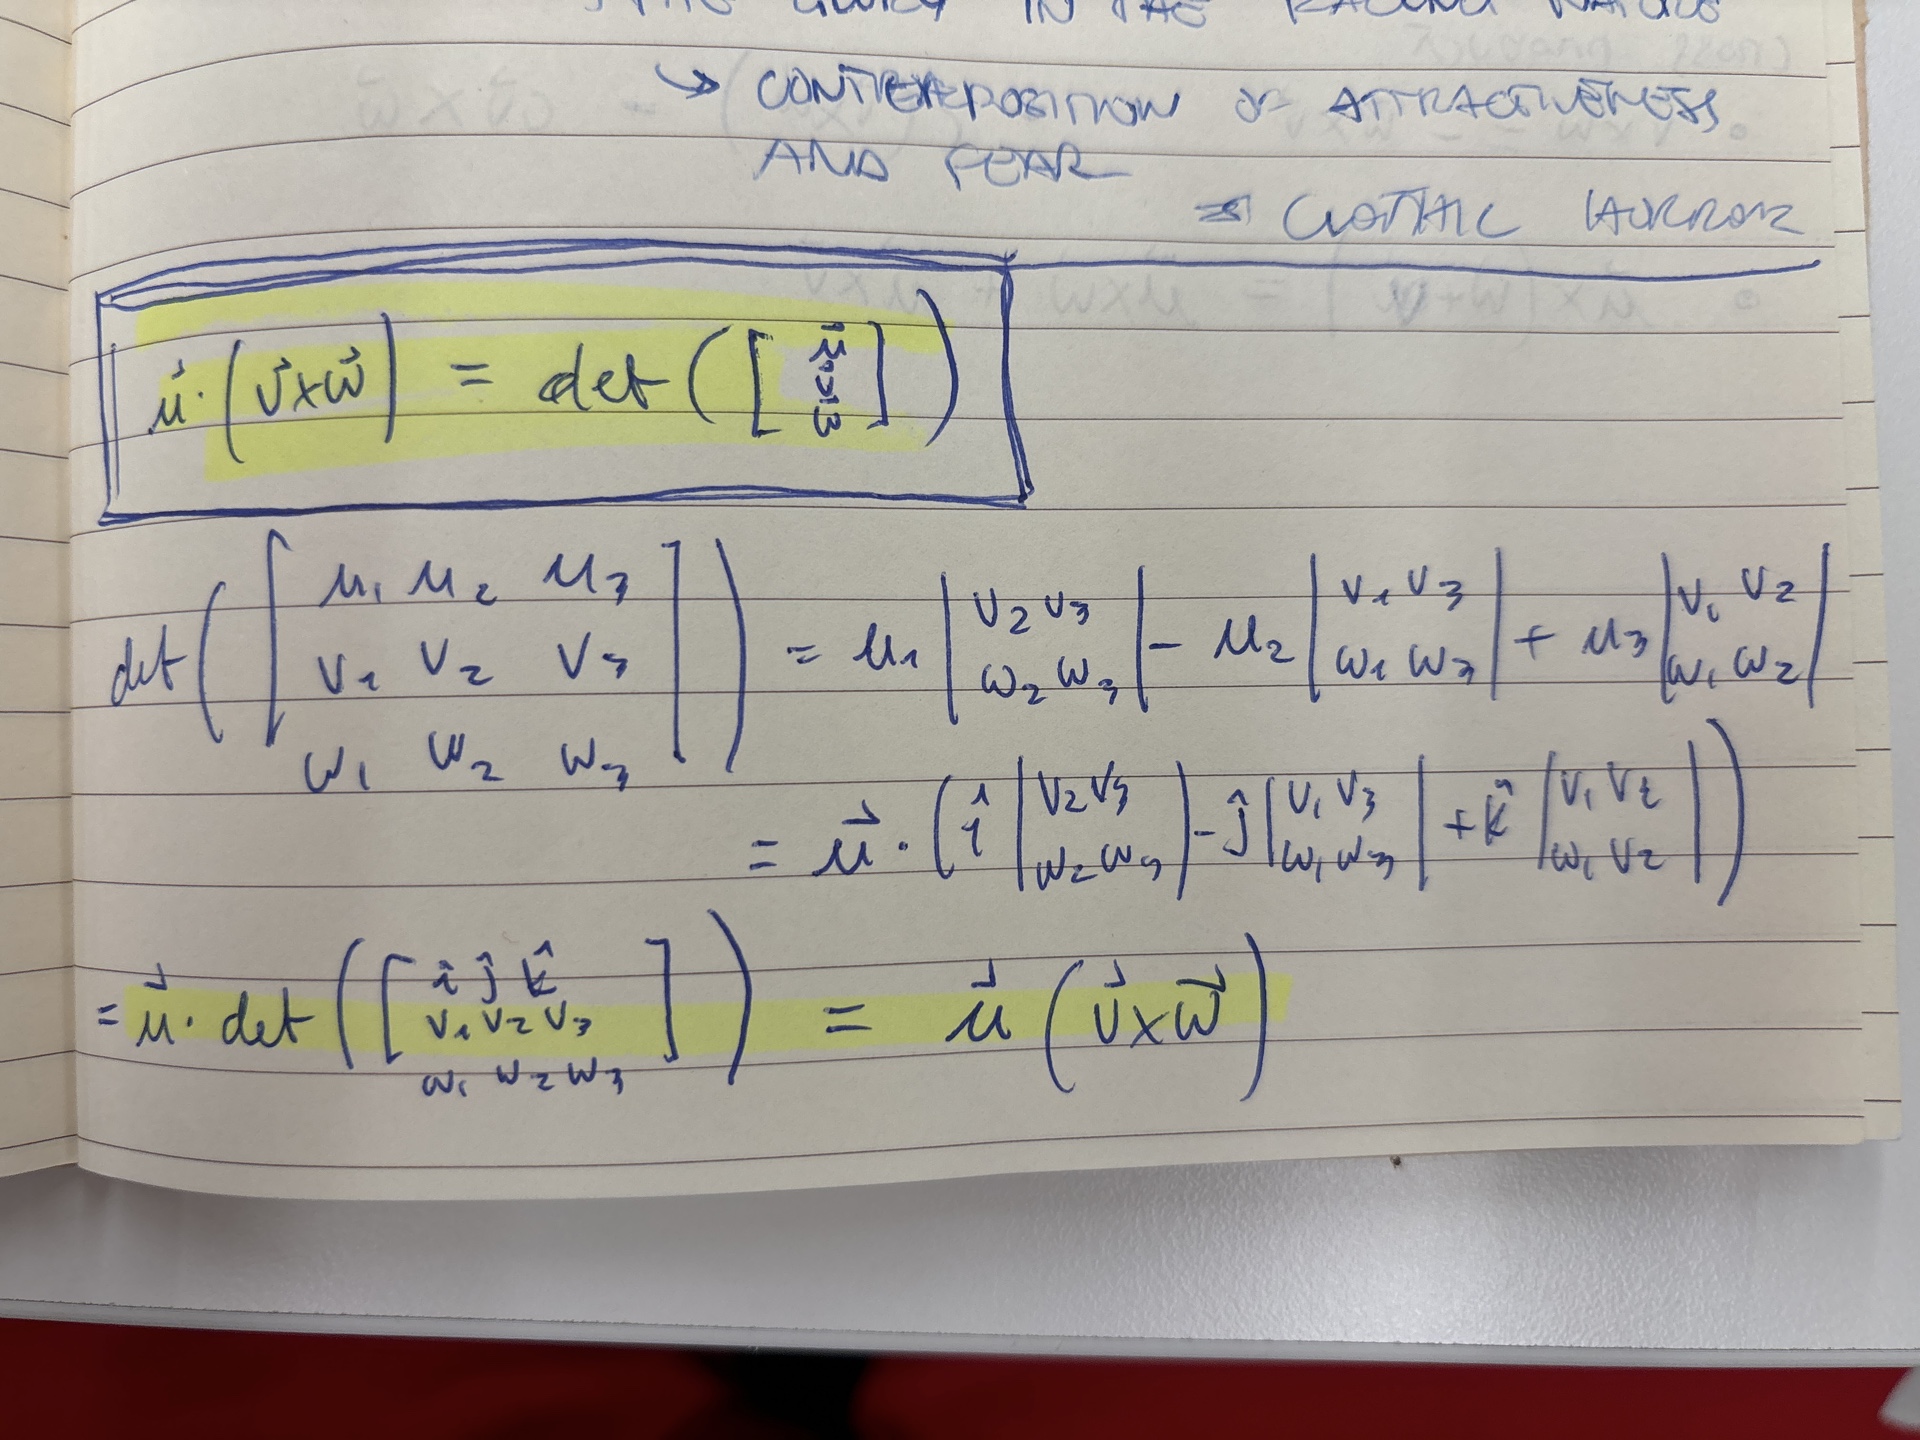 IN THE
↳ CONTRAPPOSITION OF ATTRACTIVENESS
AND FEAR
⇒ GOTHIC HORROR
u⃗ · (v⃗ × w⃗) = det([u⃗ v⃗ w⃗])
det([u₁ u₂ u₃; v₁ v₂ v₃; w₁ w₂ w₃]) = u₁ |v₂ v₃; w₂ w₃| − u₂ |v₁ v₃; w₁ w₃| + u₃ |v₁ v₂; w₁ w₂|
= u⃗ · (î |v₂ v₃; w₂ w₃| − ĵ |v₁ v₃; w₁ w₃| + k̂ |v₁ v₂; w₁ v₂|)
= u⃗ · det([î ĵ k̂; v₁ v₂ v₃; w₁ w₂ w₃]) = u⃗ (v⃗ × w⃗)